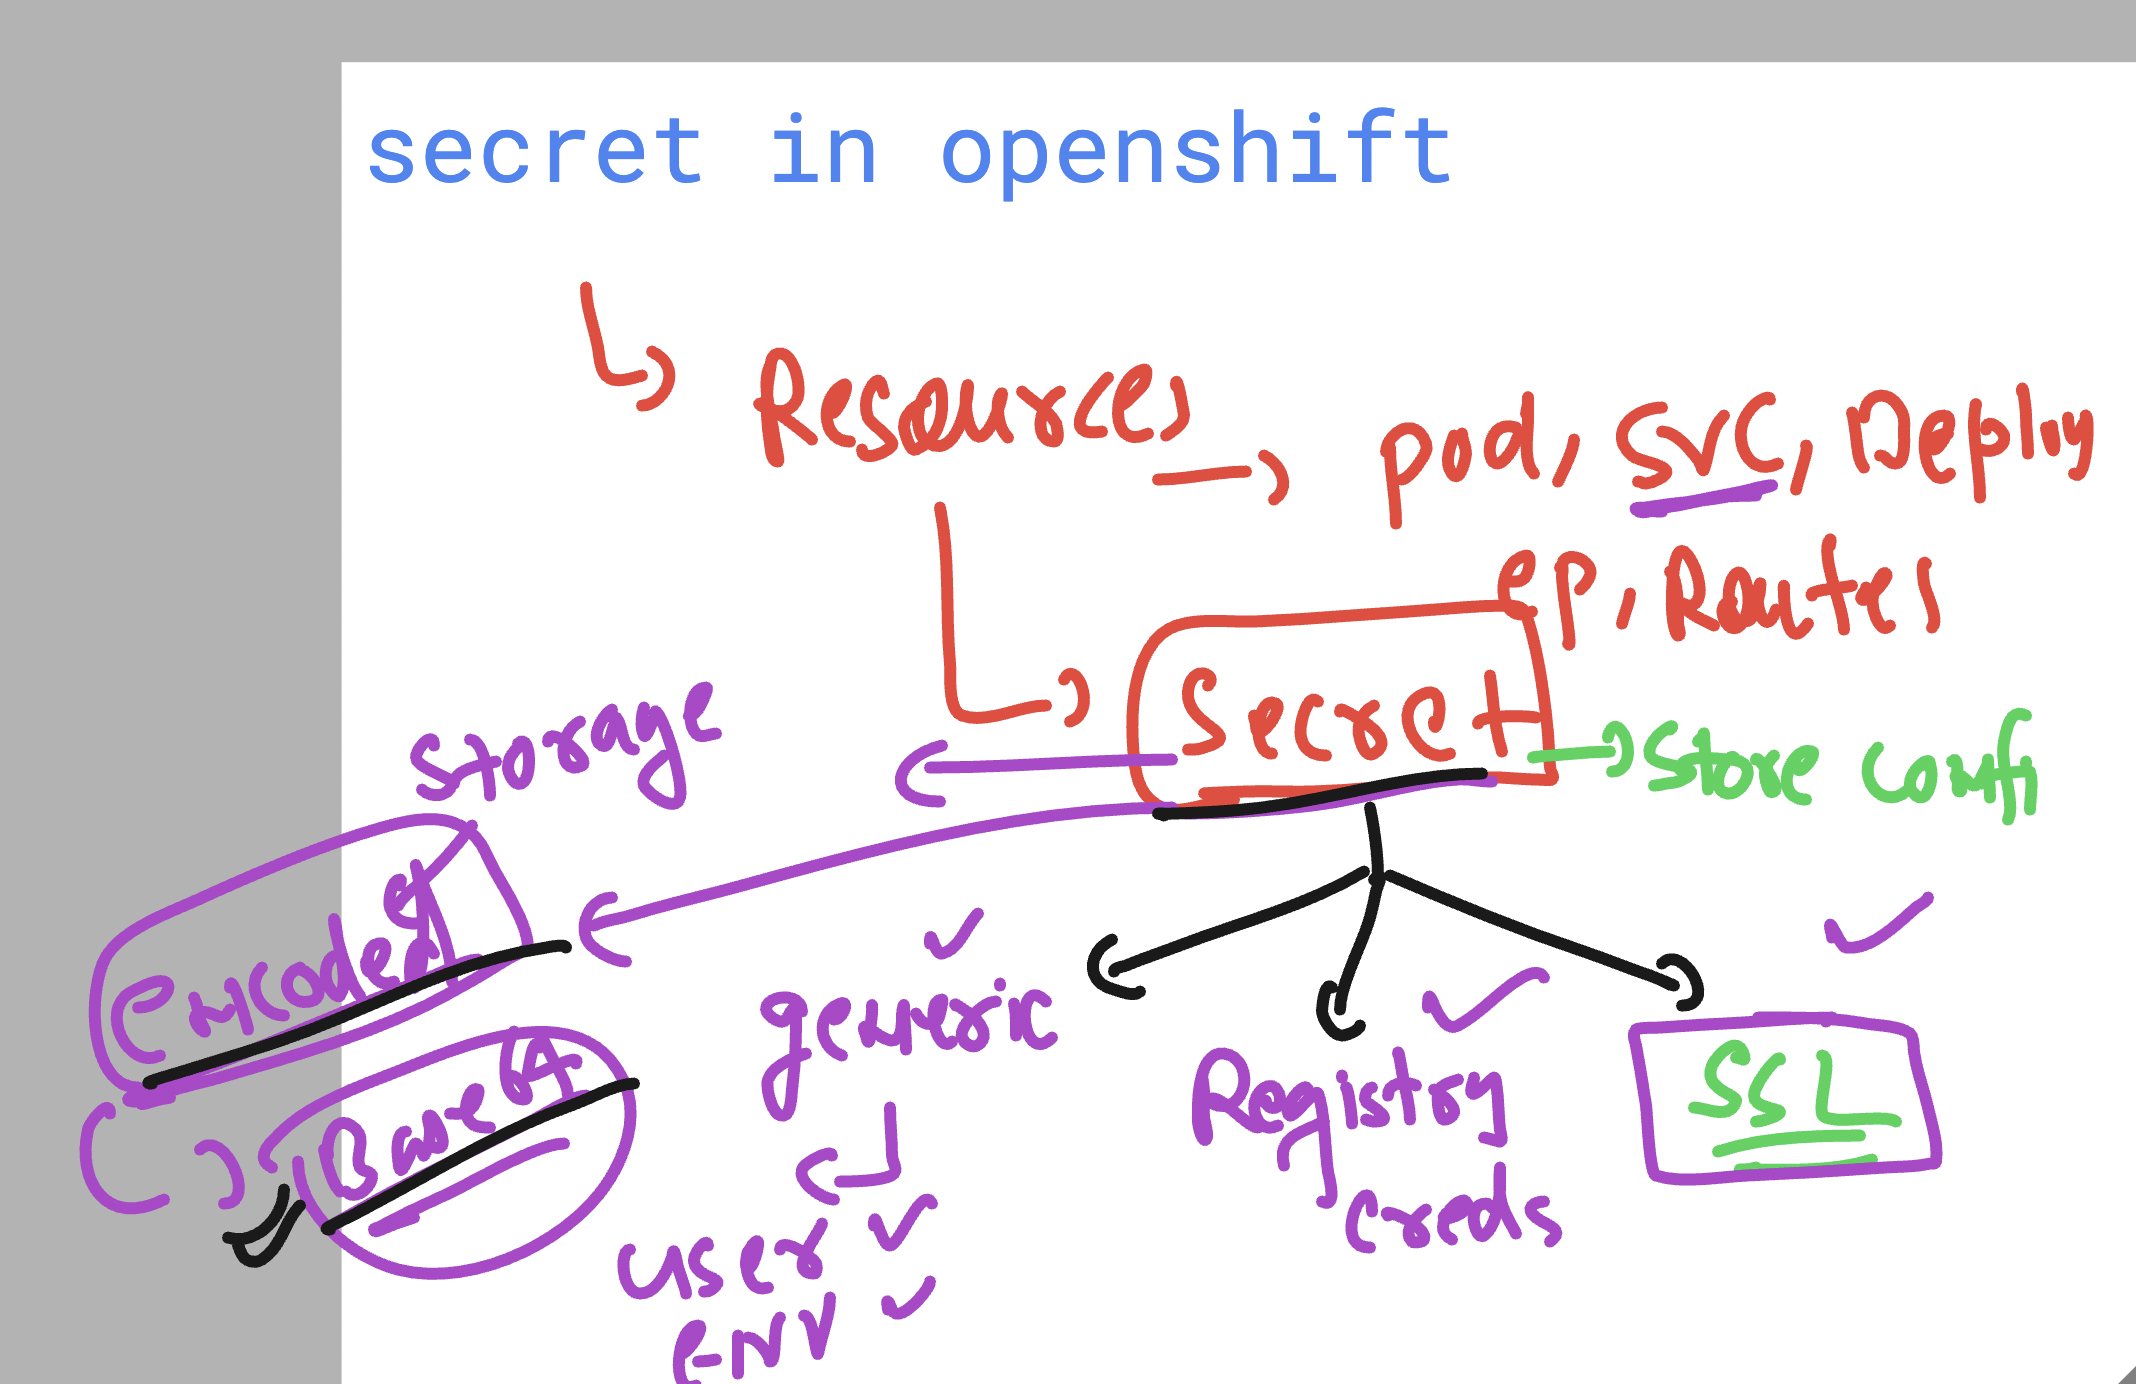 secret in openshift
Resources
pod, svc, Deploy
ep, Routes
Secret
Store
storage
encoded
Base64
generic
Registry
creds
SSL
user
env